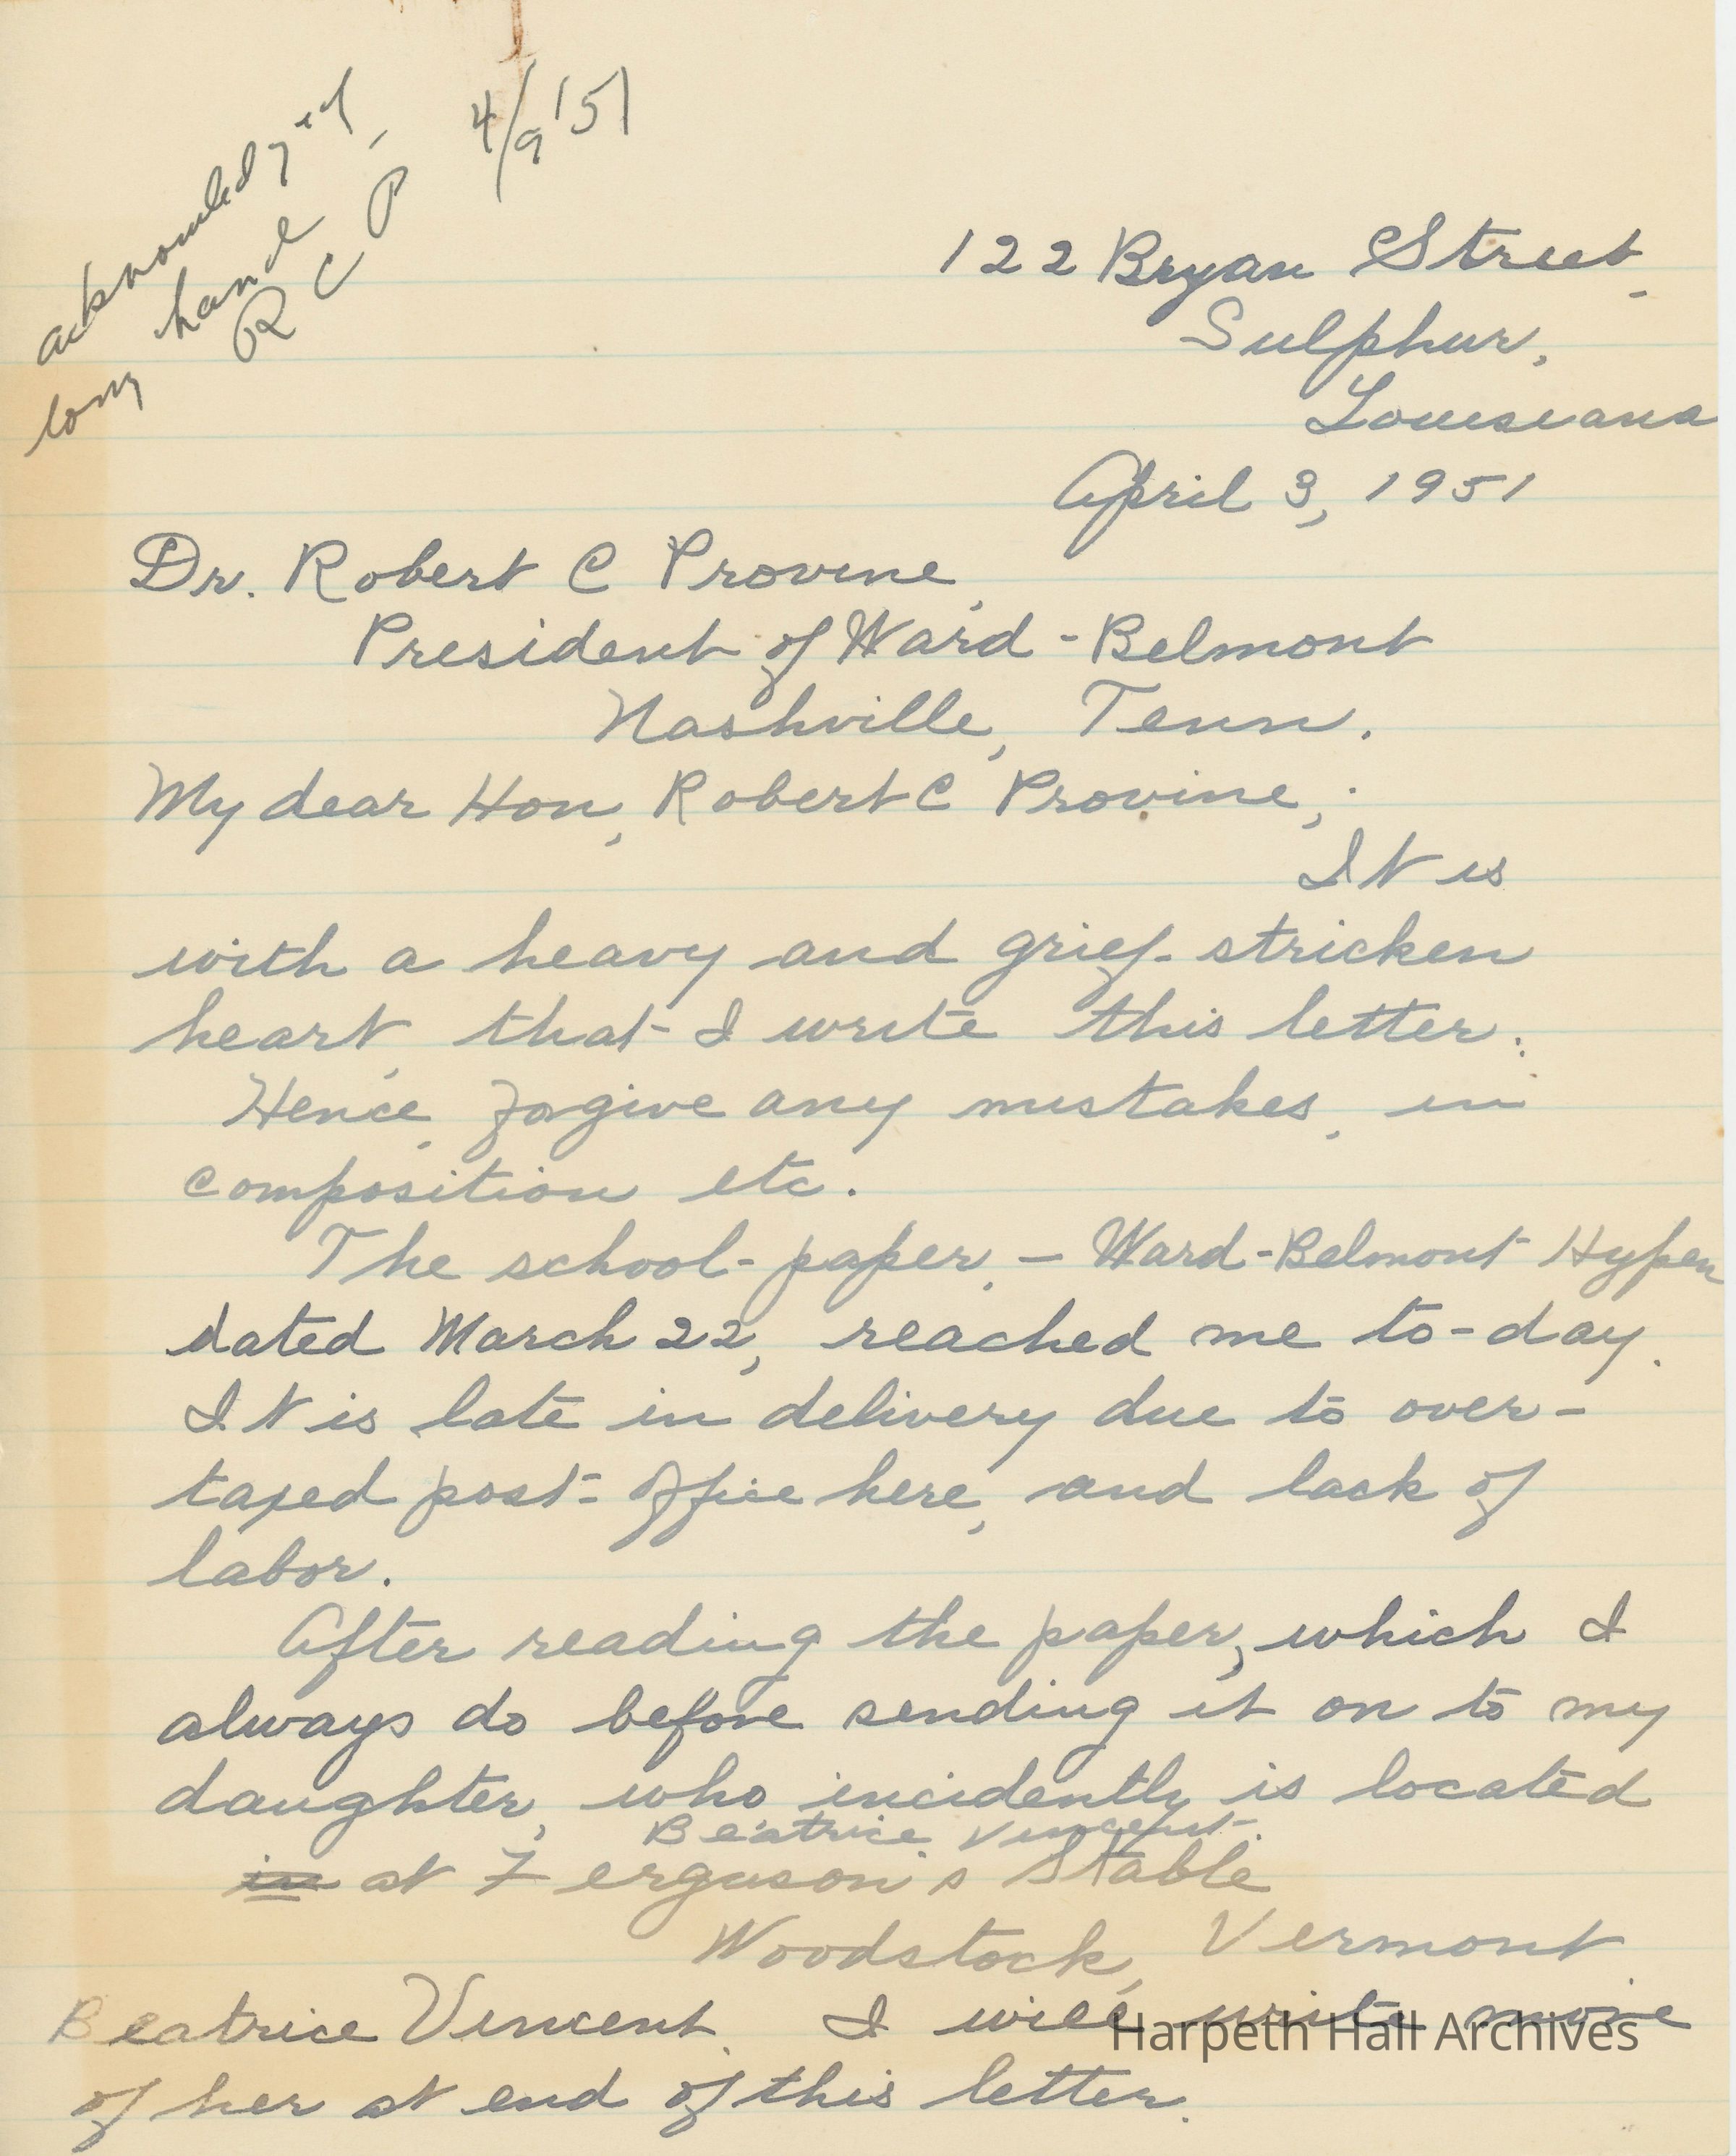 acknowledged
long hand
R C P
4/9/51
122 Bryan Street
Sulphur,
Louisiana
April 3, 1951
Dr. Robert C Provine,
President of Ward-Belmont
Nashville, Tenn.
My dear Hon, Robert C Provine,:
It is
with a heavy and grief-stricken
heart, that I write this letter.
Hence, forgive any mistakes, in
composition etc.
The school-paper, — Ward-Belmont Hyphen
dated March 22, reached me to-day.
It is late in delivery due to over-
taxed post-office here, and lack of
labor.
After reading the paper, which I
always do before sending it on to my
daughter, who incidently is located
Beatrice Vincent.
in at Ferguson's Stable
Woodstock, Vermont.
Beatrice Vincent. I will write more
of her at end of this letter.
Harpeth Hall Archives